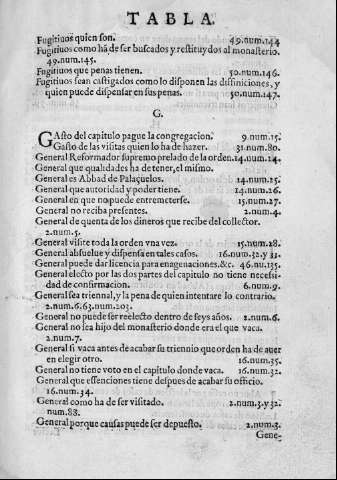 TABLA.
Fugitiuos quien son. 49.num.144
Fugitiuos como hà de ser buscados y restituydos al monasterio.
49.num.145.
Fugitiuos que penas tienen. 50.num.146.
Fugitiuos sean castigados como lo disponen las diffiniciones, y
quien puede dispensar en sus penas. 50.num.147.
G.
GAsto del capitulo pague la congregacion. 9.num.15.
Gasto de las visitas quien lo ha de hazer. 31.num.80.
General Reformador supremo prelado de la orden. 14.num.24.
General que qualidades ha de tener, el mismo.
General es Abbad de Palaçuelos. 14.num.25.
General que autoridad y poder tiene. 14.num.26.
General en que no puede entremeterse. 15.num.27.
General no reciba presentes. 2.num.4.
General de quenta de los dineros que recibe del collector.
2.num.5.
General visite toda la orden vna vez. 15.num.28.
General absuelue y dispensa en tales casos. 16.num.32.y 33.
General puede dar licencia para enagenaciones.&c. 46.nu.135.
General electo por las dos partes del capitulo no tiene necessi-
dad de confirmacion. 6.num.9.
General sea triennal, y la pena de quien intentare lo contrario.
2.num.6.63.num.203.
General no puede ser reelecto dentro de seys años. 2.num.6.
General no sea hijo del monasterio donde era el que vaca.
2.num.7.
General si vaca antes de acabar su triennio que orden ha de auer
en elegir otro. 16.num.35.
General no tiene voto en el capitulo donde vaca. 16.num.32.
General que essenciones tiene despues de acabar su officio.
16.num.34.
General como ha de ser visitado. 2.num.3.y.32.
num.88.
General porque causas puede ser depuesto. 2.num.3.
Gene-